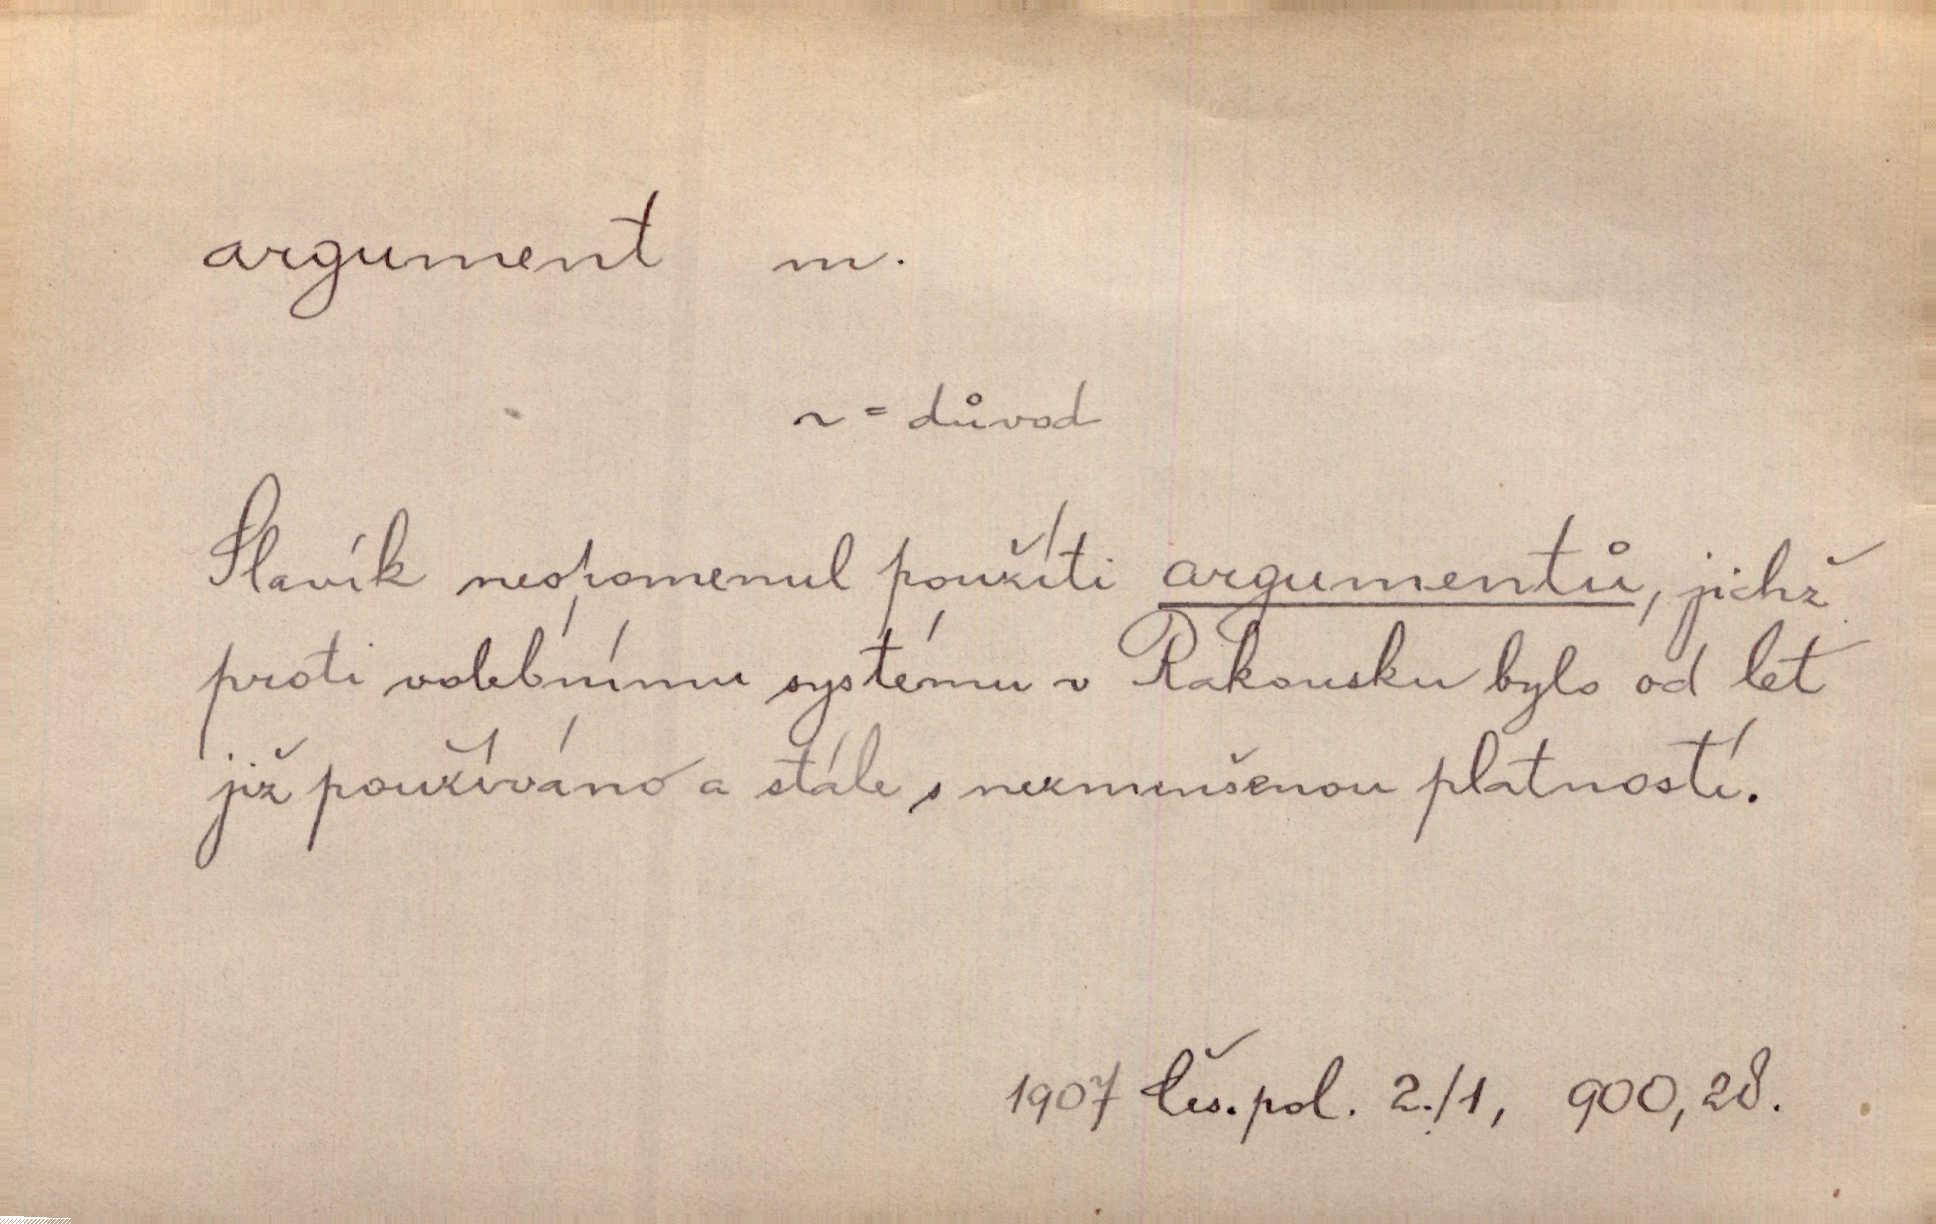 argument m.
~ = důvod
Slavík neopomenul použíti argumentů, jichž
proti volebnímu systému v Rakousku bylo od let
již používáno a stále s nezmenšenou platností.
1907 Čes. pol. 2./1, 900, 28.